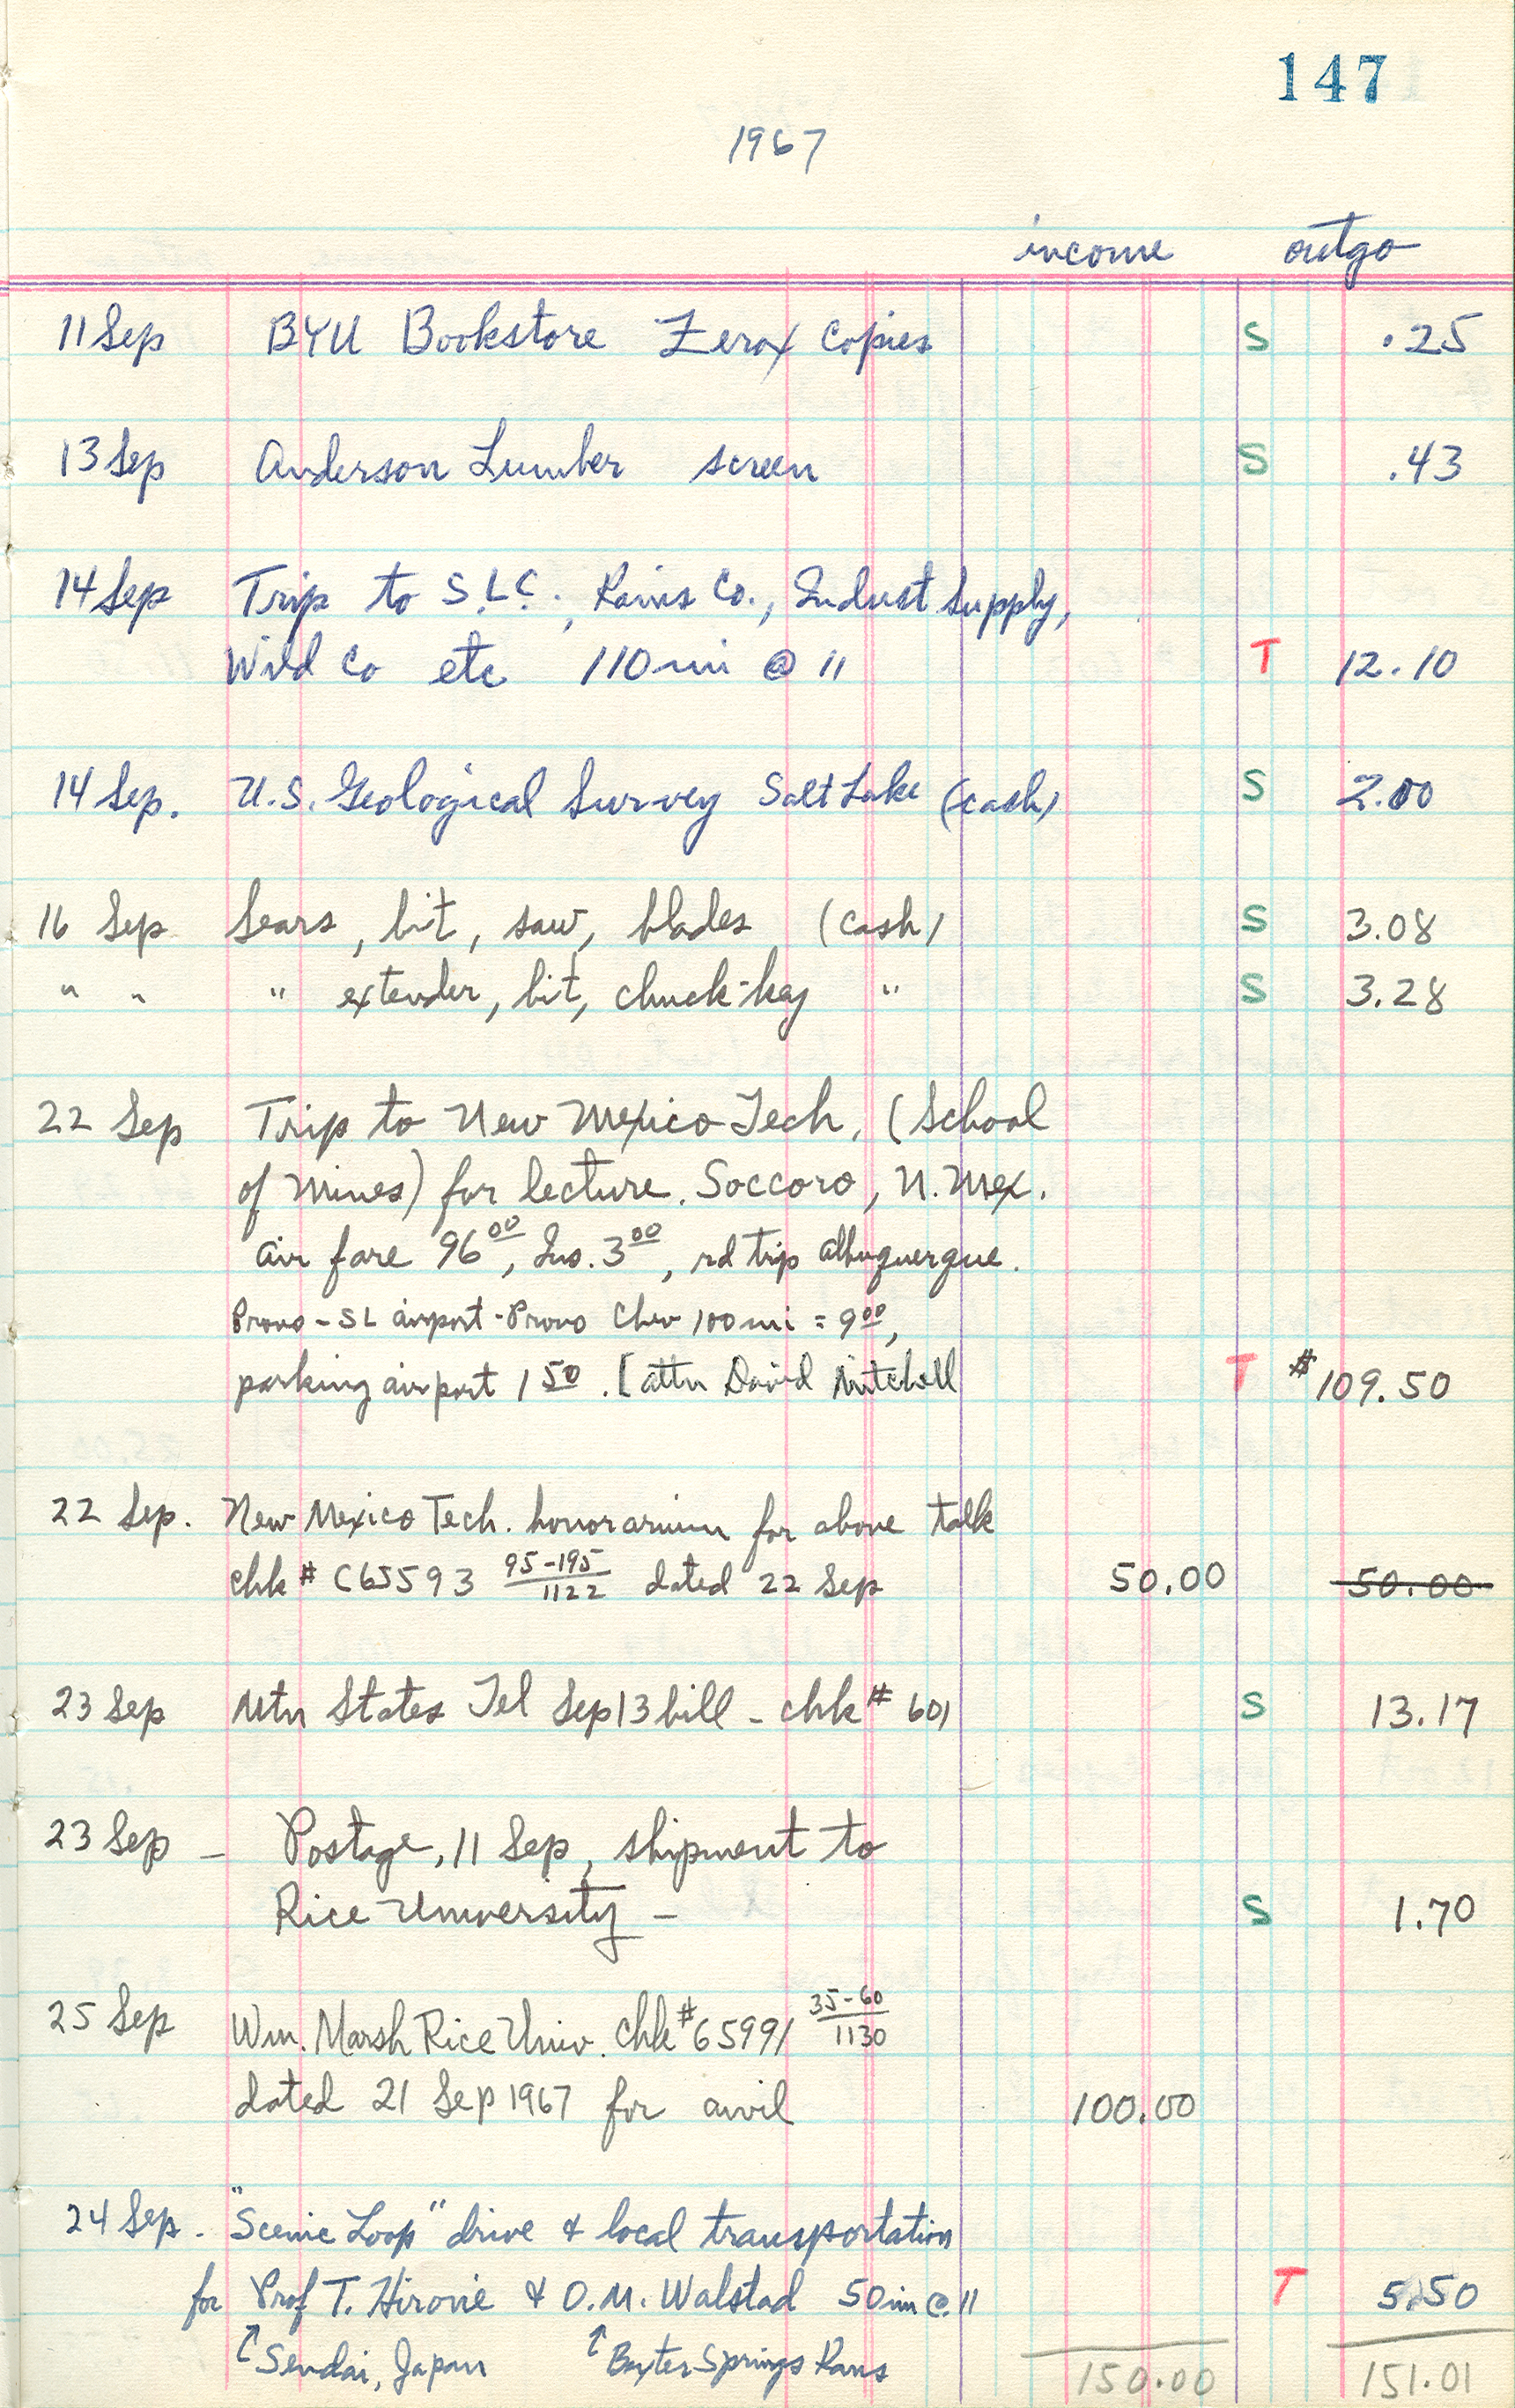 147
1967
income outgo
11 Sep BYU Bookstore Zerox Copies S .25
13 Sep Anderson Lumber screen S .43
14 Sep Trip to S.L.C., Co., Indust Supply,
Co etc 110 mi @ 11 T 12.10
14 Sep. U.S. Geological Survey Salt Lake (cash) S 2.00
16 Sep Sears, bit, saw, blades (cash) S 3.08
" " " extender, bit, chuck-key " S 3.28
22 Sep Trip to New Mexico Tech, (School
of Mines) for lecture. Soccoro, N. Mex.
air fare 96 00, Ins. 3 00, rd trip Albuquerque.
Provo - SL airport - Provo Chev 100 mi = 9 00,
parking airport 1 50. [attn David Mitchell T $ 109.50
22 Sep. New Mexico Tech. honorarium for above talk
chk # C65593 95-195/1122 dated 22 Sep 50.00 50.00
23 Sep Mtn States Tel Sep 13 bill - chk # 601 S 13.17
23 Sep - Postage, 11 Sep, shipment to
Rice University - S 1.70
25 Sep Wm. Marsh Rice Univ. chk # 65991 35-60/1130
dated 21 Sep 1967 for anvil 100.00
24 Sep. "Scenic Loop" drive & local transportation
for Prof T. & O.M. Walstad 50 mi @ 11 T 5.50
↑ Sendai, Japan ↑ Baxter Springs Kans
150.00 151.01